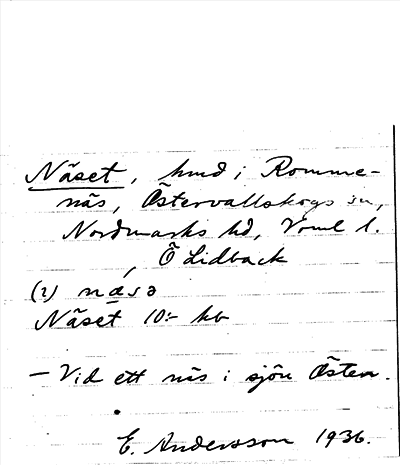 Näset, hmd i Romme-
näs, Östervallskogs sn,
Nordmarks hd, Vrml l.
Ö Lidback
(i) nasə
Näset 10:- kb
– Vid ett näs i sjön Östen.
E. Andersson 1936.